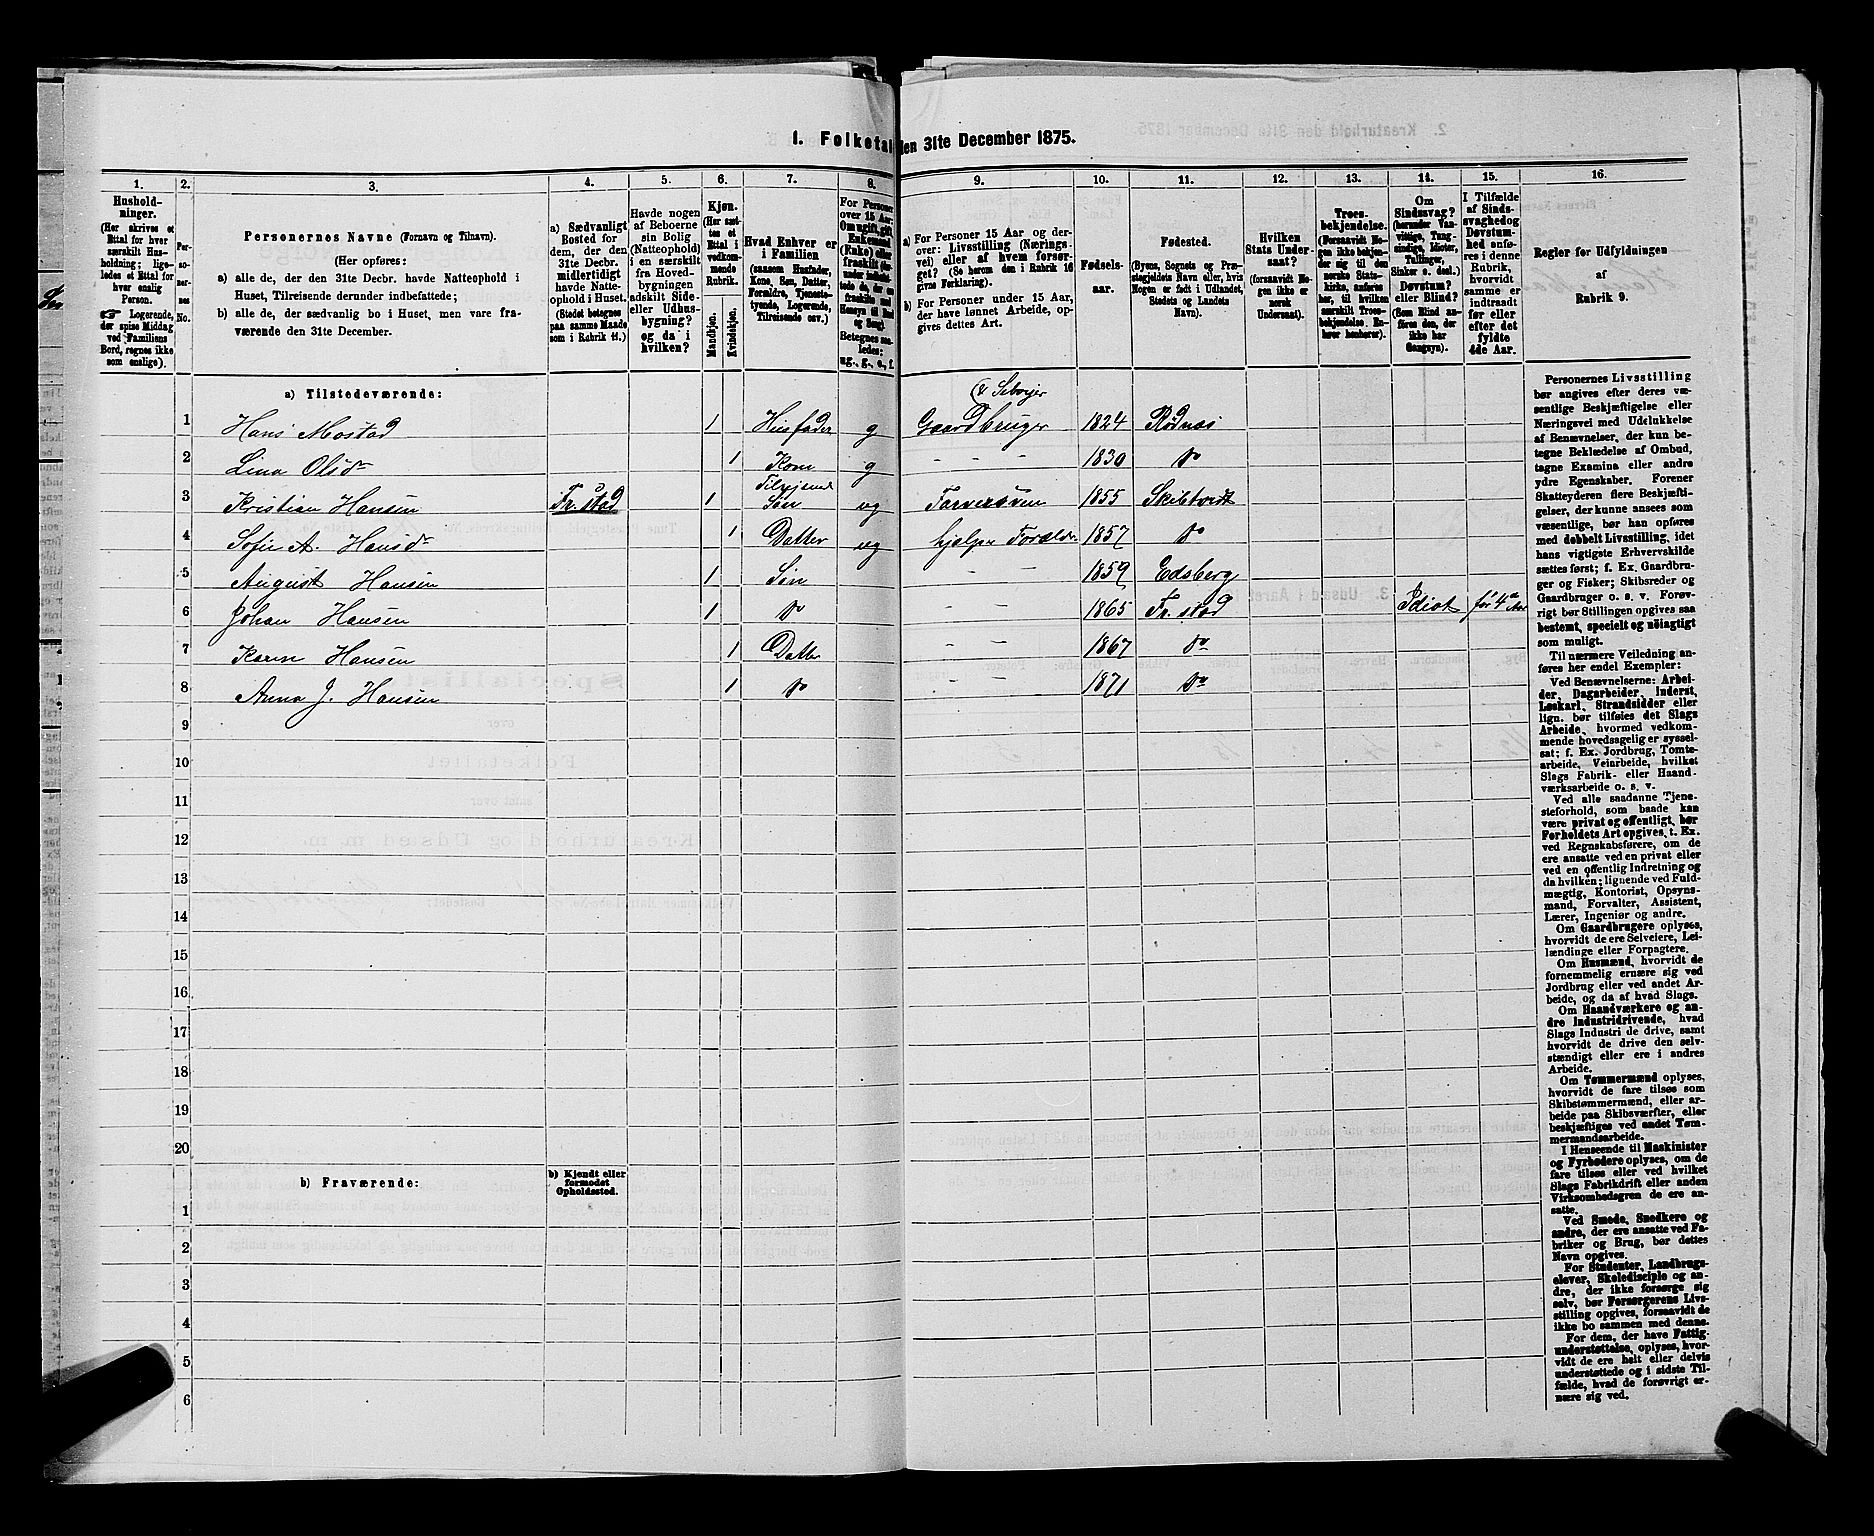 1. Folketal
den 31te December 1875.
1.
2.
3.
4.
5.
6.
7.
8.
9.
10.
11.
12.
13.
14.
15.
16.
Hushold-
ninger.
(Her skrives et
Ettal for hver
særskilt Hus-
holdning; lige-
ledes et Ettal for
hver enslig
Person.
☞ Logerende,
der spise Middag
ved Familiens
Bord, regnes ikke
som enslige).
Per-
so-
ner-
nes
No.
Personernes Navne (Fornavn og Tilnavn).
(Her opføres:
a) alle de, der den 31te Decbr. havde Natteophold i
Huset, Tilreisende derunder indbefattede;
b) alle de, der sædvanlig bo i Huset, men vare fra-
værende den 31te December.
a) Sædvanligt
Bosted for
dem, der den
31te Decbr.
midlertidigt
havde Natte-
ophold i Huset.
(Stedet betegnes
paa samme Maade
som i Rubrik 11.)
Havde nogen
af Beboerne
sin Bolig
(Natteophold)
i en særskilt
fra Hoved-
bygningen
adskilt Side-
eller Udhus-
bygning?
og da i
hvilken?
Kjøn.
(Her sæt-
tes et
Ettal i
vedkom-
mende
Rubrik.
Mandkjøn.
Kvindekjøn.
Hvad Enhver er
i Familien
(saasom Husfader,
Kone, Søn, Datter,
Forældre, Tjeneste-
tyende, Logerende,
Tilreisende osv.)
For Personer
over 15 Aar:
Om ugift, gift,
Enkemand
(Enke) eller
fraskilt
Betegnes saa-
ledes:
ug., g., e., f.
a) For Personer 15 Aar og der-
over: Livsstilling (Nærings-
vei) eller af hvem forsør-
get? (Se herom den i Rubrik 16
givne Forklaring).
b) For Personer under 15 Aar,
der have lønnet Arbeide, op-
gives dettes Art.
Fødsels-
aar.
Fødested.
(Byens, Sognets og Præ-
stegjeldets Navn eller, hvis
Nogen er født i Udlandet,
Stedets og Landets
Navn).
Hvilken
Stats Under-
saat?
(forsaavidt No-
gen ikke er
norsk
Undersaat).
Troes-
bekjendelse.
(Forsaavidt No-
gen ikke bekjen-
der sig til den
norske Stats-
kirke, anføres
her, til hvilken
særskilt Troes-
bekjendelse En-
hver henhører).
Om
Sindssvag?
(herunder Van-
vittige, Tung-
sindige, Idioter,
Tullinger,
Sinker o. desl.)
Døvstum?
eller Blind?
(Som Blind an-
føres den, der
ikke har
Gangsyn).
I Tilfælde
af Sinds-
svaghed og
Døvstum-
hed anfø-
res i denne
Rubrik,
hvorvidt
samme er
indtraadt
før eller
efter det
fyldte
4de Aar.
Regler for Udfyldningen
af
Rubrik 9.
a) Tilstedeværende:
& Selvejer
1 Hans Mostad 1 Husfader g Gaardbruger 1824 Rødnæs
2 Lina Olsdr 1 Kone g - - - 1830 do
Tilrejsende
3 Kristian Hansen Fr.stad 1 Søn ug 1855
4 Sofie A. Hansdr 1 Datter ug hjelpe Foræld. 1857 do
5 August Hansen 1 Søn - - 1859 Edsberg
6 Johan Hansen 1 do - - 1865 Fr.stad Idiot før 4de Aar
7 Karen Hansen 1 Datter - - 1867 do
8 Anna J. Hansen 1 do - - 1871 do
9
10
11
12
13
14
15
16
17
18
19
20
b) Fraværende:
b) Kjendt eller
formodet
Opholdssted.
1
2
3
4
5
6
Personernes Livsstilling
bør angives efter deres væ-
sentlige Beskjæftigelse eller
Næringsvei med Udelukkelse
af Benævnelser, der kun be-
tegne Beklædelse af Ombud,
tagne Examina eller andre
ydre Egenskaber. Forener
Skatteyderen flere Beskjæfti-
gelser, der kunne ansees som
væsentlige, bør han opføres
med dobbelt Livsstilling, idet
hans vigtigste Erhvervskilde
sættes først; f. Ex. Gaardbru-
ger og Fisker; Skibsreder og
Gaardbruger o. s. v. Forøv-
rigt bør Stillingen opgives saa
bestemt, specielt og nøiagtigt
som muligt.
Til nærmere Veiledning an-
føres her endel Exempler:
Ved Benævnelserne: Arbei-
der, Dagarbeider, Inderst,
Løskarl, Strandsidder eller
lign. bør tilføies det Slags
Arbeide, hvormed vedkom-
mende hovedsagelig er syssel-
sat; f. Ex. Jordbrug, Tomte-
arbeide, Veiarbeide, hvilket
Slags Fabrik- eller Haand-
værksarbeide o. s. v.
Ved alle saadanne Tjene-
steforhold, som baade kan
være privat og offentligt, bør
Forholdets Art opgives, t. Ex.
ved Regnskabsførere, om de
ere ansatte ved en privat eller
ved en offentlig Indretning og
da hvilken; lignende ved Fuld-
mægtig, Kontorist, Opsyns-
mand, Forvalter, Assistent,
Lærer, Ingeniør og andre.
Om Gaardbrugere oplyses,
hvorvidt de ere Selveiere, Lei-
lændinge eller Forpagtere.
Om Husmænd, hvorvidt de
fornemmelig ernære sig ved
Jordbrug eller ved andet Ar-
beide, og da af hvad Slags.
Om Haandværkere og an-
dre Industridrivende, hvad
Slags Industri de drive, samt
hvorvidt de drive den selv-
stændigt eller ere i andres
Arbeide.
Om Tømmermænd oplyses,
hvorvidt de fare tilsøs som
Skibstømmermænd, eller ar-
beide paa Skibsværfter, eller
beskjæftiges ved andet Tøm-
mermandsarbeide.
I Henseende til Maskinister
og Fyrbødere oplyses, om de
fare tilsøs eller ved hvilket
Slags Fabrikdrift eller anden
Virksomhedsgren de ere an-
satte.
Ved Smede, Snedkere og
andre, der ere ansatte ved Fa-
briker og Brug, bør dettes
Navn opgives.
For Studenter, Landbrugs-
elever, Skoledisciple og an-
dre, der ikke forsørge sig
selv, bør Forsørgerens Livs-
stilling opgives, forsaavidt de
ikke bo sammen med denne.
For dem, der have Fattig-
understøttelse, oplyses, hvor-
vidt de ere helt eller delvis
understøttede og i sidste Til-
fælde, hvad de forøvrigt er-
nære sig ved.